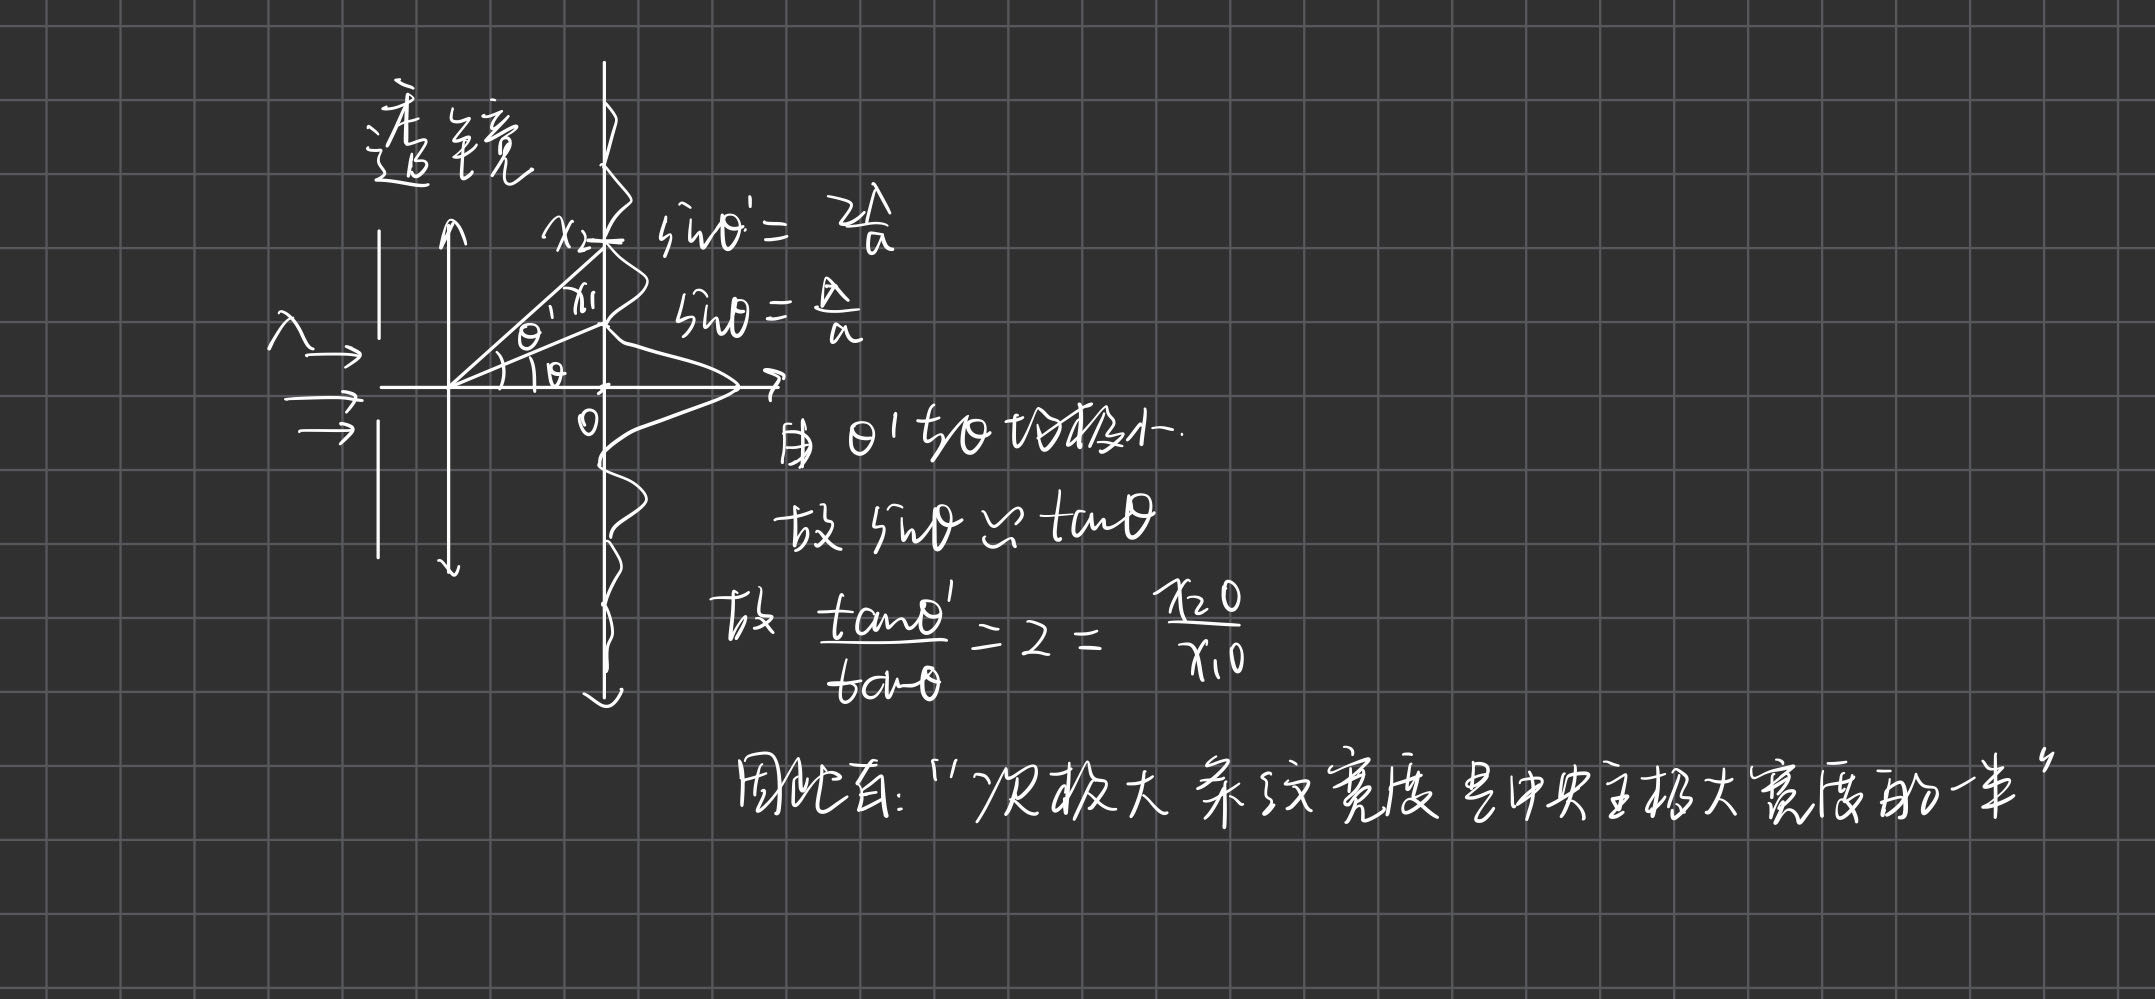 透镜
x₂ sinθ' = 2λ/a
x₁ sinθ = λ/a
θ'
λ
θ
0
由 θ' 与θ 均极小.
故 sinθ ≌ tanθ
故 tanθ'/tanθ = 2 = x₂0/x₁0
因此有: "次极大条纹宽度是中央主极大宽度的一半"